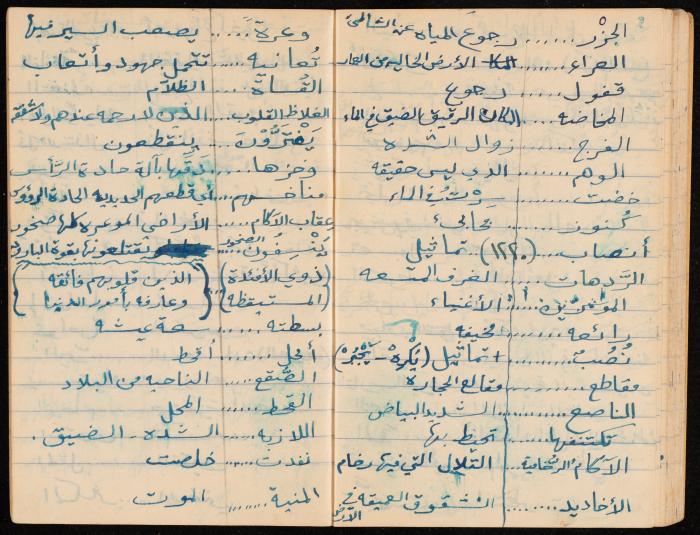 الجزْر ....... رجوع المياه عن الشاطئ
العراء ....... الأرض الخاليه من العمار
قفول ....... رجوع
المخاضه ..... المكان الرقيق الضيق في الماء
الفرج ....... زوال الشده
الوهم ....... الذي ليس حقيقه
خضت ....... سِرْتُ في الماء
كُنوز ....... مخابئ
أنصاب .... (١٢٢٠) تماثيل
الرَّدهات ..... الغرف المتسعه
الموسرين ..... الأغنياء
رائعه ....... مخيفه
نُصُبٌ ....... تماثيل (يَكرهْ - يُجْبَرْ)
مقاطع ....... مقالع الحجاره
الناصع ....... الشديد البياض
تكتنفها ....... تحيط بها
الآكام الرخاميه .... التلال التي فيها رخام
الأخاديد ....... الشقوق العميقه في الأرض
وعرة ....... يصعب السير فيها
تُعانيه ....... تتحمل جهود وأتعاب
القُساة ....... الظلام
الغلاظ القلوب ..... الذين لا رحمه عندهم ولا شفقه
ينقطعون
وخزها ....... دقها بآلة حادة الرَّأس
مناخسهم .... أي قطعهم الحديديه الحادة الرؤوس
عقاب الآكام ..... الأراضي الموعره
ينسفون الصخور .... يقتلعونها بقوة البارود
(ذوي الأفئدة المستيقظه) .... (الذين قلوبهم فائقه وعارفه بأمور الدنيا)
بسطته ....... سعة عيشه
أمحل ....... أقحط
الصُّقع ....... الناحيه من البلاد
القحط ....... المحل
اللازبه ....... الشده - الضيق.
نفدت ....... خلصت
المنية ....... الموت